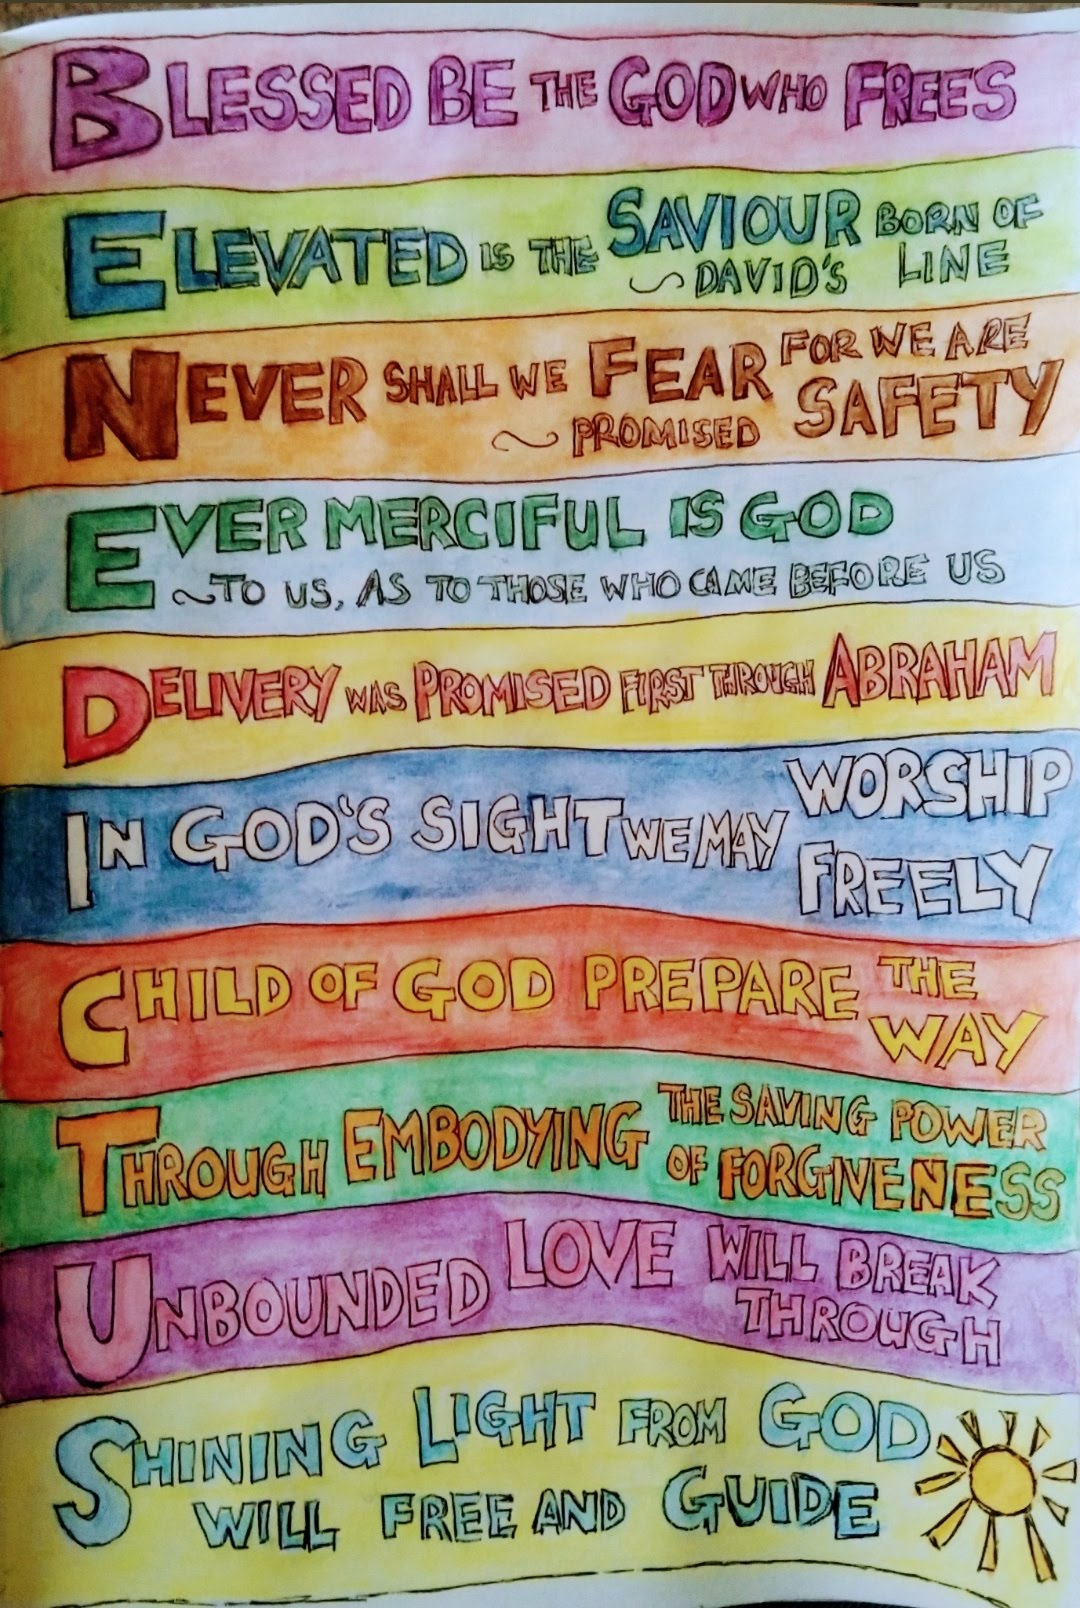 BLESSED BE THE GOD WHO FREES
ELEVATED IS THE SAVIOUR BORN OF
~ DAVID'S LINE
NEVER SHALL WE FEAR FOR WE ARE
~ PROMISED SAFETY
EVER MERCIFUL IS GOD
~ TO US, AS TO THOSE WHO CAME BEFORE US
DELIVERY WAS PROMISED FIRST THROUGH ABRAHAM
IN GOD'S SIGHT WE MAY WORSHIP
FREELY
CHILD OF GOD PREPARE THE
WAY
THROUGH EMBODYING THE SAVING POWER
OF FORGIVENESS
UNBOUNDED LOVE WILL BREAK
THROUGH
SHINING LIGHT FROM GOD
WILL FREE AND GUIDE